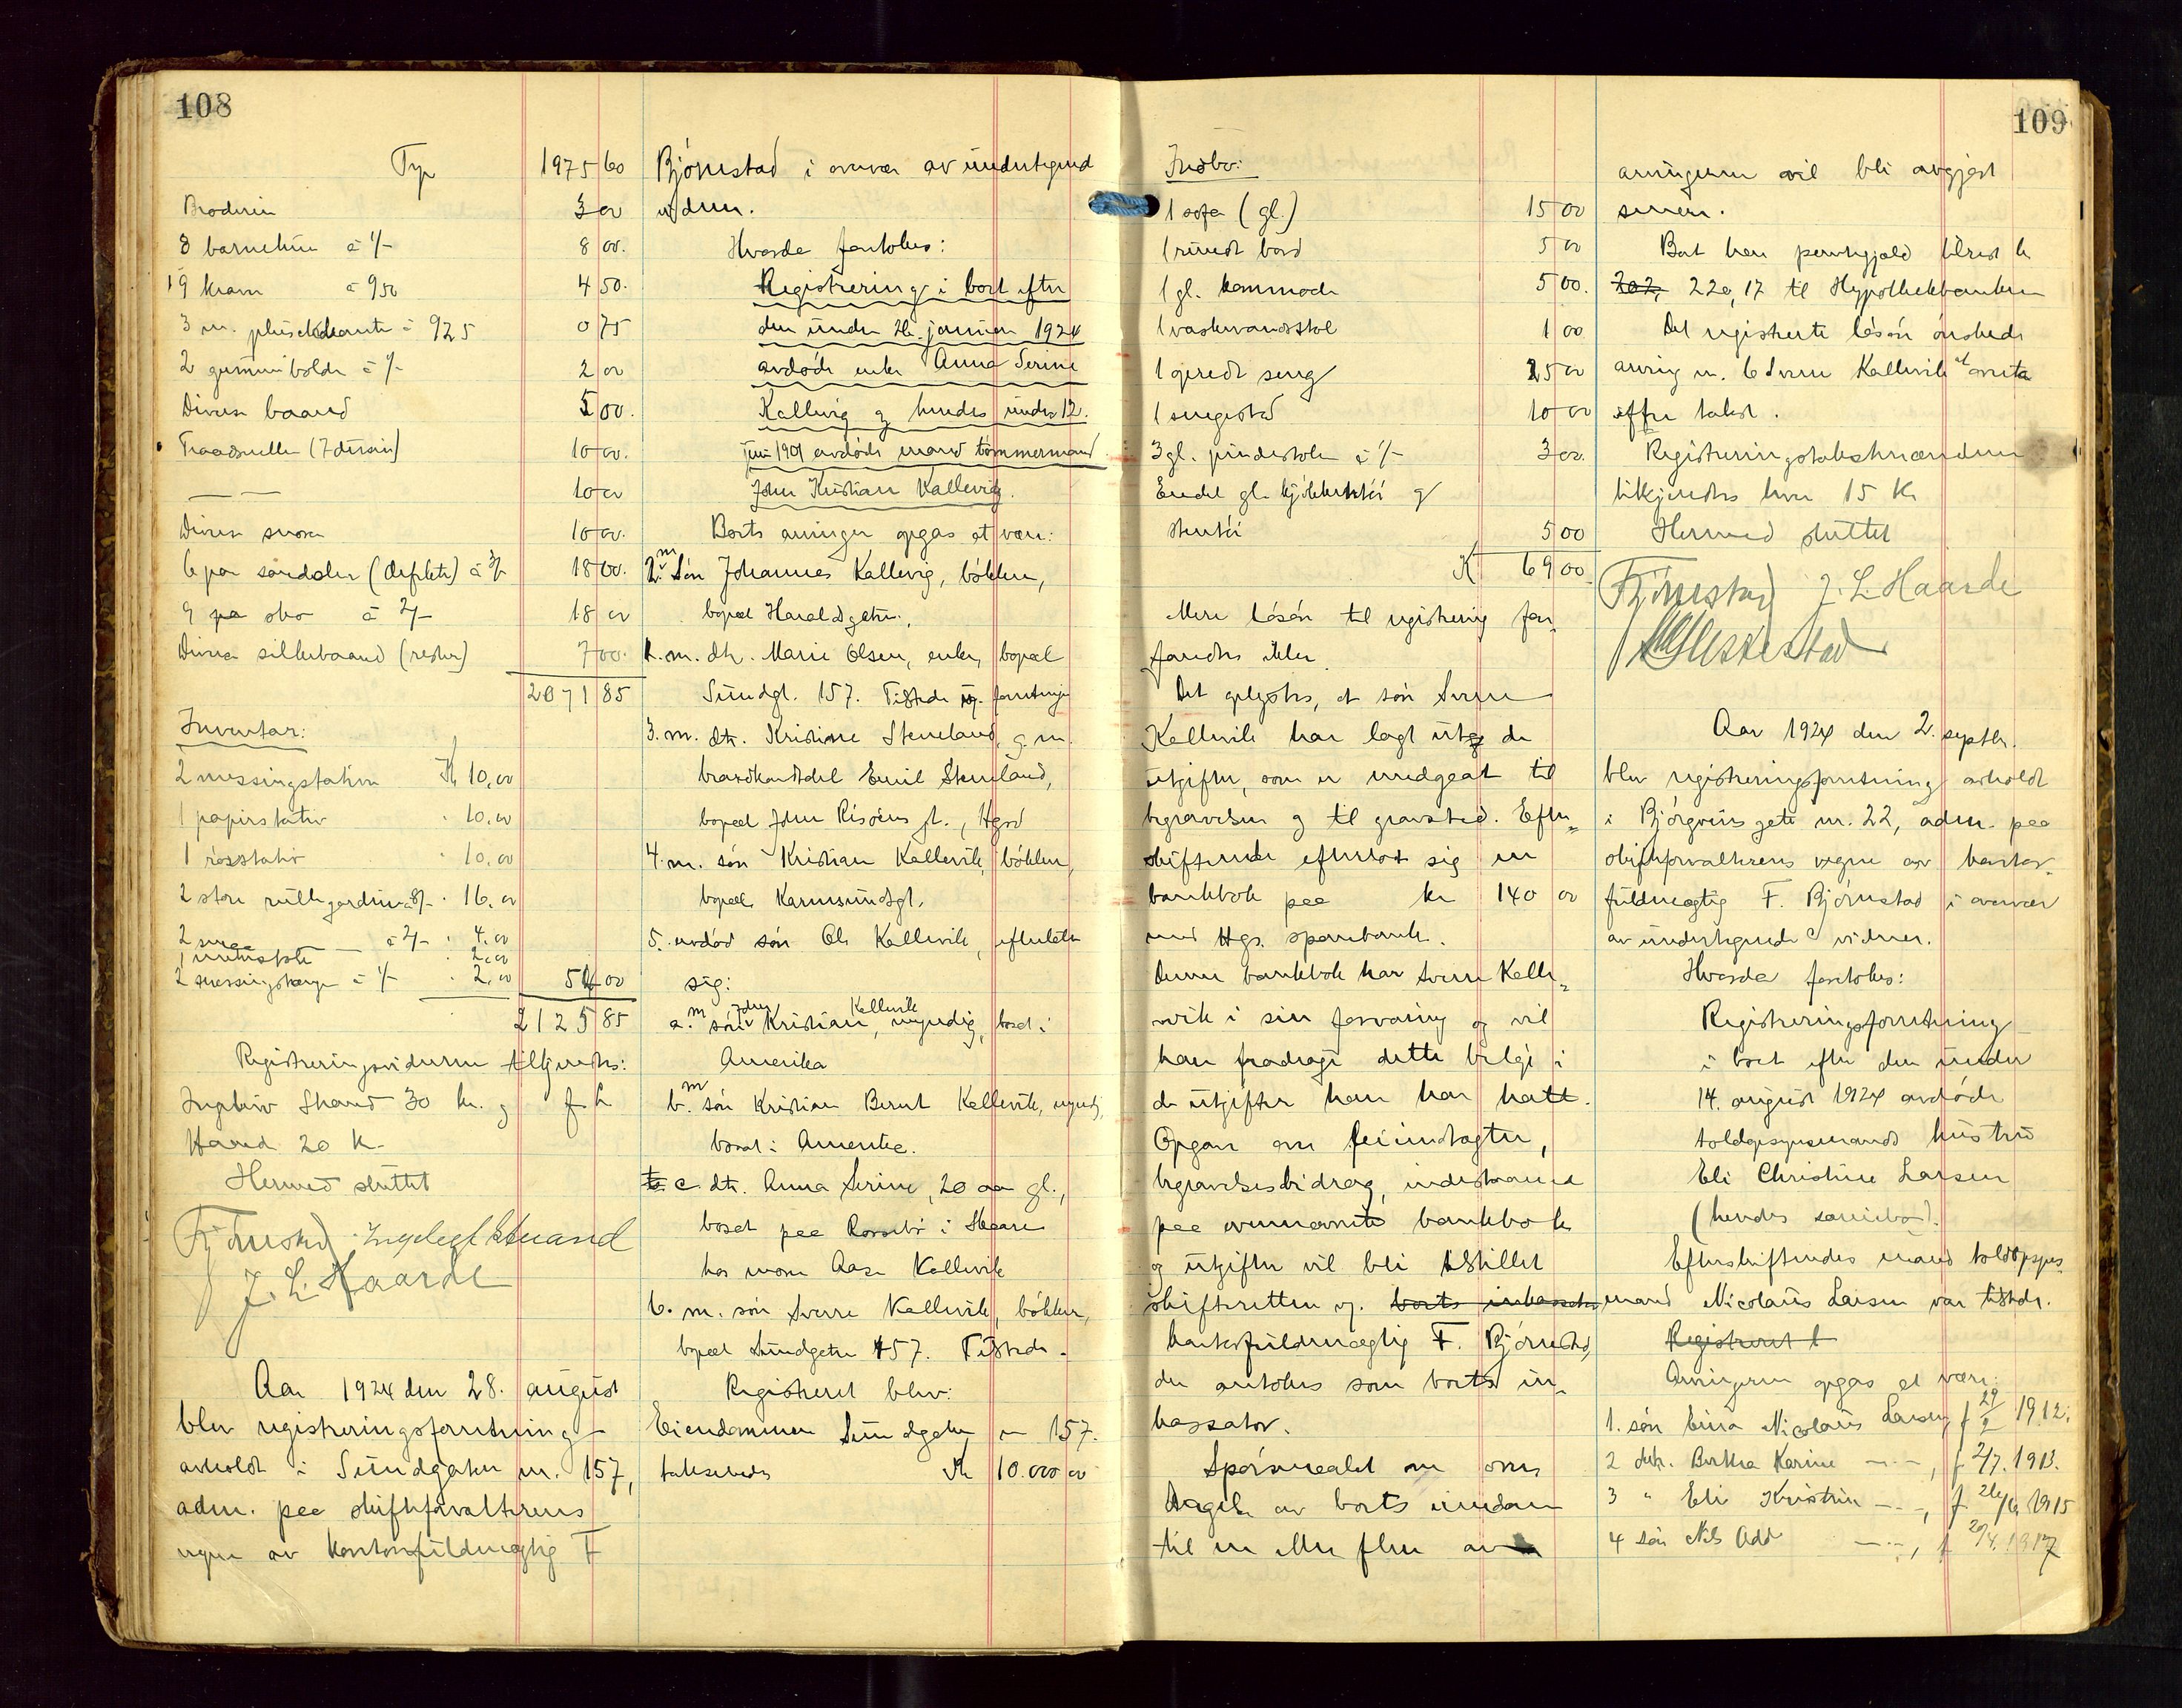 108
Trp 1975 60
Broderin 3 00
8 barneluer à 1/- 8 00.
19 kraver à 950 4 50.
3 m. plüschkante à 925 0 75
2 gummibolde à 1/- 2 00
Diverse baand 5 00.
Traadsneller (7 dusin) 10 00.
— — 10 00
Diverse snorer 10 00.
6 par sandaler (defekte) à 3/- 18 00.
9 par sko à 2/- 18 00
Diverse silkebaand (rester) 7 00.
2071 85
Inventar:
2 messingstativer Kr 10,00
1 papirstativ " 10,00
1 rosstativ " 10,00
2 store rullegardiner à 8/- " 16,00
2 smaa — à 2/- " 4,00
" 2,00
2 messingstænger à 1/- " 2,00 54 00
2125 85
Registreringsvidnerne tilkjendtes:
Ingleiv Strand 30 kr. og J. L.
Haard 20 kr.
Hermed sluttet
F Bjørnstad Ingeleif Strand
J. L. Haarde
Aar 1924 den 28. august
blev registreringsforretning
avholdt i Sundgaten nr. 157,
adm. paa skifteforvalterens
vegne av kontorfuldmægtig F
Bjørnstad i overvær av undertegnede
vidner.
Hvorda foretokes:
Registrering i boet efter
den under 26. januar 1924
avdøde enke Anna Serine
Kallevig og hendes under 12.
juni 1901 avdøde mand tømmermand
John Kristian Kallevig.
Boets arvinger opgas at være:
m
2. Søn Johannes Kallevig, bøkker,
bopæl Haraldsgaten.,
1. m. dtr. Marie Olsen, enke, bopæl
Sundgt. 157. Tilstede v. forretningen
3. m. dtr. Kristine Steneland, g. m.
brandkonstabel Emil Steneland,
bopæl John Risøens gt., Hgsd
4. m. søn Kristian Kallevik, bøkker,
bopæl Karmsundsgt.
5. avdød søn Ole Kallevik, efterlatt
sig:
a. m søn John Kristian Kallevik, umyndig, bosat i
Amerika
b. m søn Kristian Bernt Kallevik, umyndig,
bosat i Amerika.
c. dtr. Anna Serine, 20 aar gl.,
bosat paa Rossebø i Skaare
hos moren Aasa Kallevik
6. m. søn Sverre Kallevik, bøkker,
bopæl Sundgaten 157. Tilstede.
Registreret blev:
Eiendommen Sundgaten nr 157.
takseredes Kr 10.000 00
109
Indbo:
1 sofa (gl.) 15 00
1 rundt bord 5 00
1 gl. kommode 5 00.
1 vaskevandsstol 1 00
1 opredt seng 25 00
1 sengested 10 00
3 gl. pindestoler à 1/- 3 00.
Endel gl. kjøkkentøi og
stentøi 5 00
Kr 69 00
Mere løsøre til registrering fore-
fandtes ikke.
Det oplystes, at søn Sverre
Kallevik har lagt ut de
utgifter, som er medgaat til
begravelsen og til gravsted. Efter-
skiftende efterlot sig en
bankbok paa kr 140 00
med Hgs. sparebank.
Denne bankbok har Sverre Kalle-
vik i sin forvaring og vil
han fradrage dette beløp i
de utgifter han har hatt.
Opgave over leieindtægter,
begravelsesbidrag, indestaaende
paa ovennævnte bankbok
og utgifter vil bli tilstillet
skifteretten v. boets inkassator
kontorfuldmægtig F. Bjørnstad,
der antokes som boets in-
kassator.
Spørsmaalet om over-
tagelse av boets eiendom
til en eller flere av
arvingerne vil bli avgjort
senere.
Boet har pantegjæld tilrest kr
202, 220,17 til Hypothekbanken
Det registrerte løsøre ønskede
arving nr. 6 Sverre Kallevik at overta
efter takst.
Registreringstakstmændene
tilkjendtes hver 15 Kr
Hermed sluttet
F Bjørnstad J. L. Haarde
Aar 1924 den 2. septbr.
blev registreringsforretning avholdt
i Bjørgvins gate nr. 22, adm. paa
skifteforvalterens vegne av kontor-
fuldmægtig F. Bjørnstad i overvær
av undertegnede vidner.
Hvorda foretokes:
Registreringsforretning
i boet efter den under
14. august 1924 avdøde
toldopsynsmands hustru
Eli Christine Larsen
(hendes særeiebo).
Efterskiftendes mand toldopsyns-
mand Nicolaus Larsen var tilstede.
Registreret b
Arvingerne opgas at være:
1. søn Einar Nicolaus Larsen, f 29/2 1912.
2 dtr. Bertha Karine —"—, f 2/7. 1913.
3 " Eli Kristine —"—, f. 26/6 1915
4 søn Nils Odd —"—, f 20/4. 1917